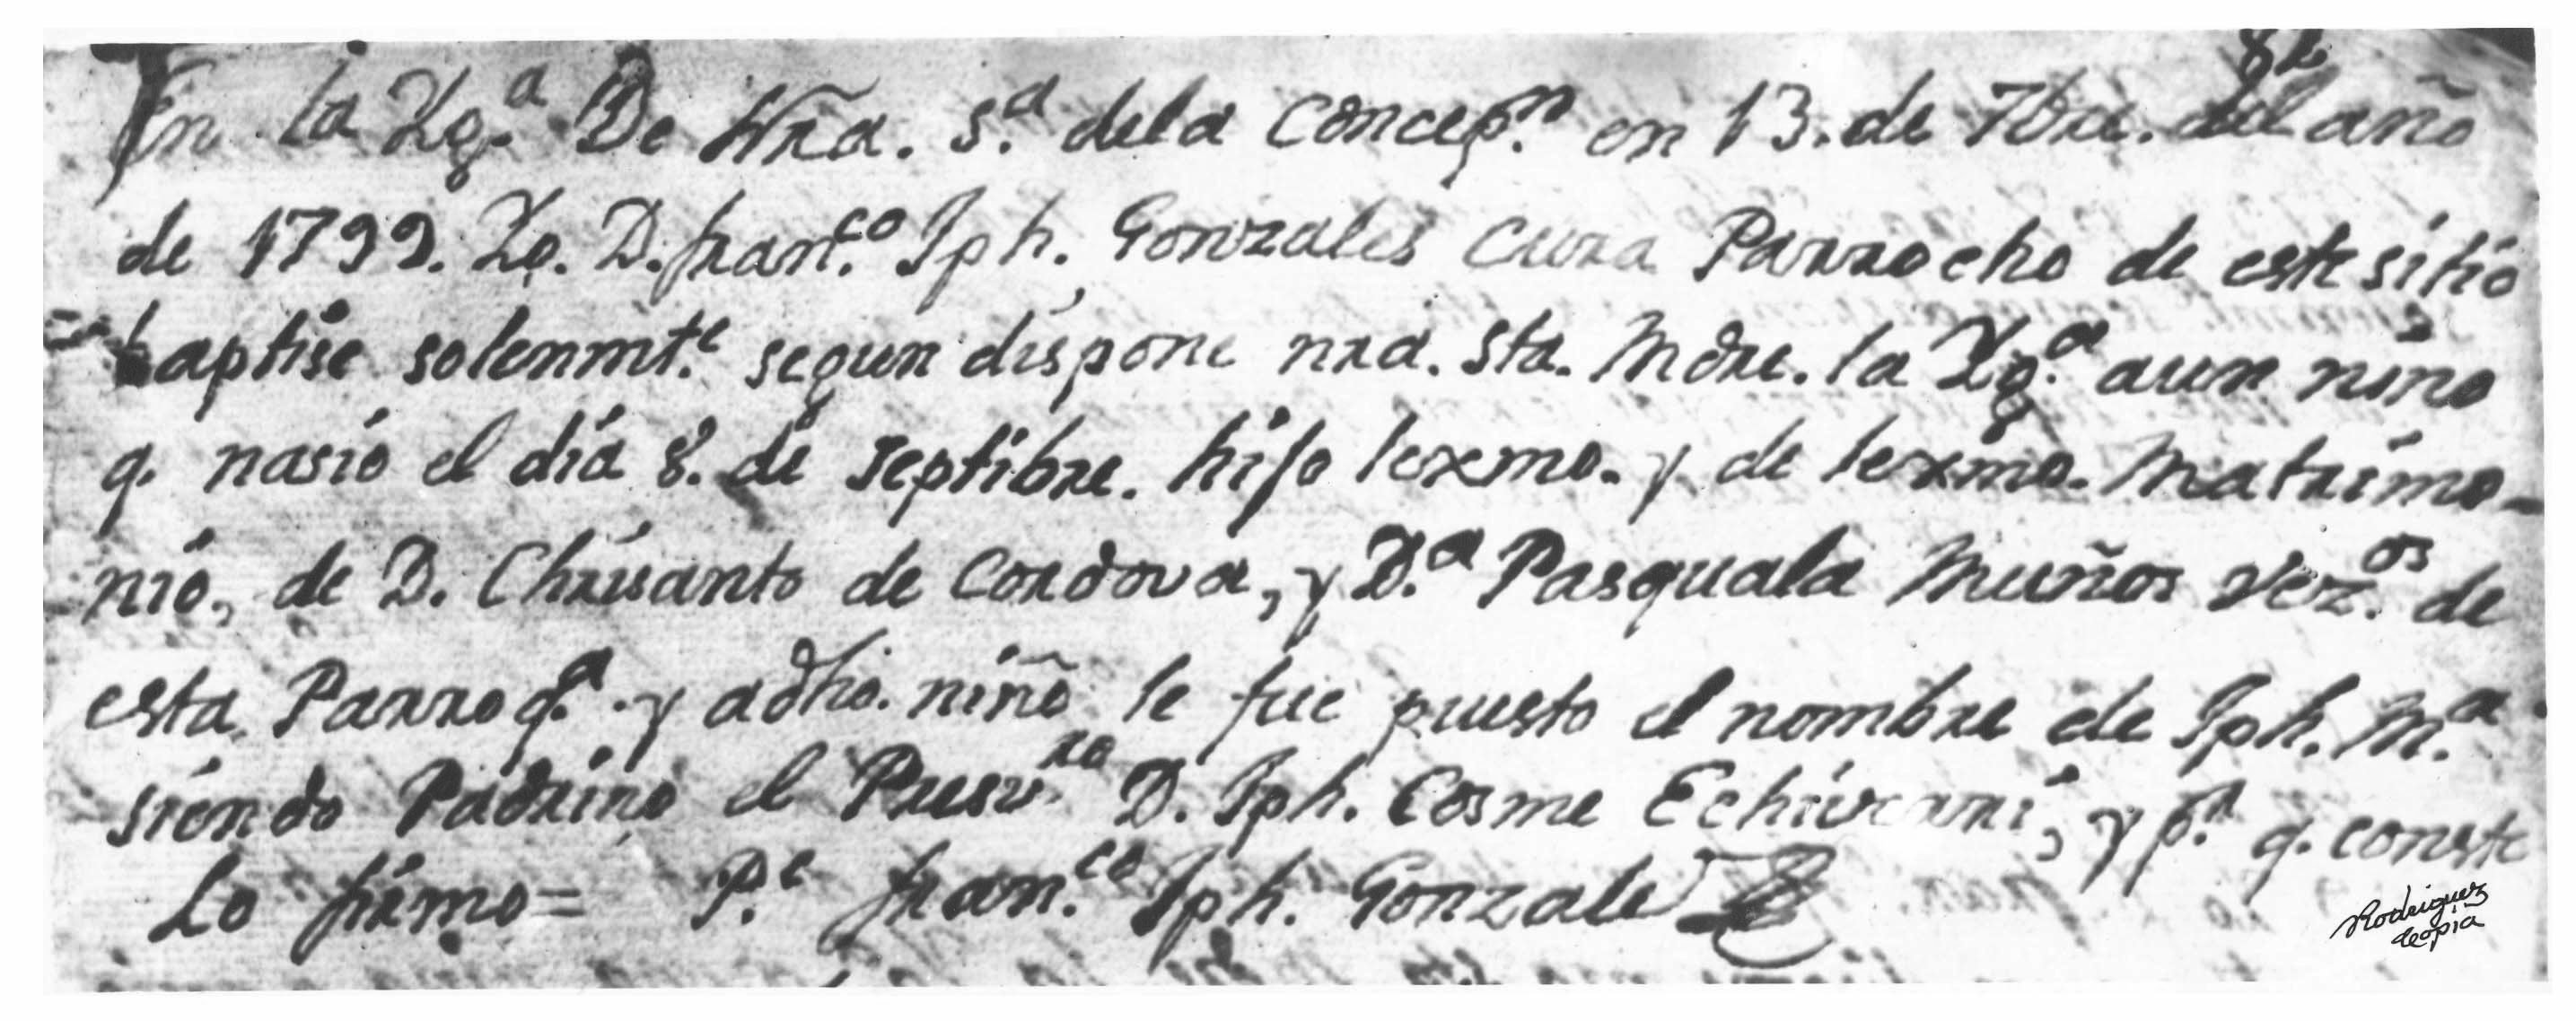 82
En la Yg.ª De Nra. S.ª dela Concep.n en 13. de 7bre. del año
de 1799. Yo. D. fran.co Jph. Gonzales Cura Parrocho de este sitio
baptise solenmt.e segun dispone nra. Sta. Mdre. la Yg.ª aun niño
q. nasio el dia 8. de septibre. hijo lexmo. y de lexmo. Matrimo-
nio, de D. Chrisanto de Cordova, y D.ª Pasquala Muños Vez.os de
esta Parroq.ª y adho. niño le fue puesto el nombre de Jph. M.ª
siendo Padrino el Presv.ro D. Jph. Cosme y p.ª q. conste
Lo firmo= P.e fran.co Jph. Gonzales
Rodriguez
copia